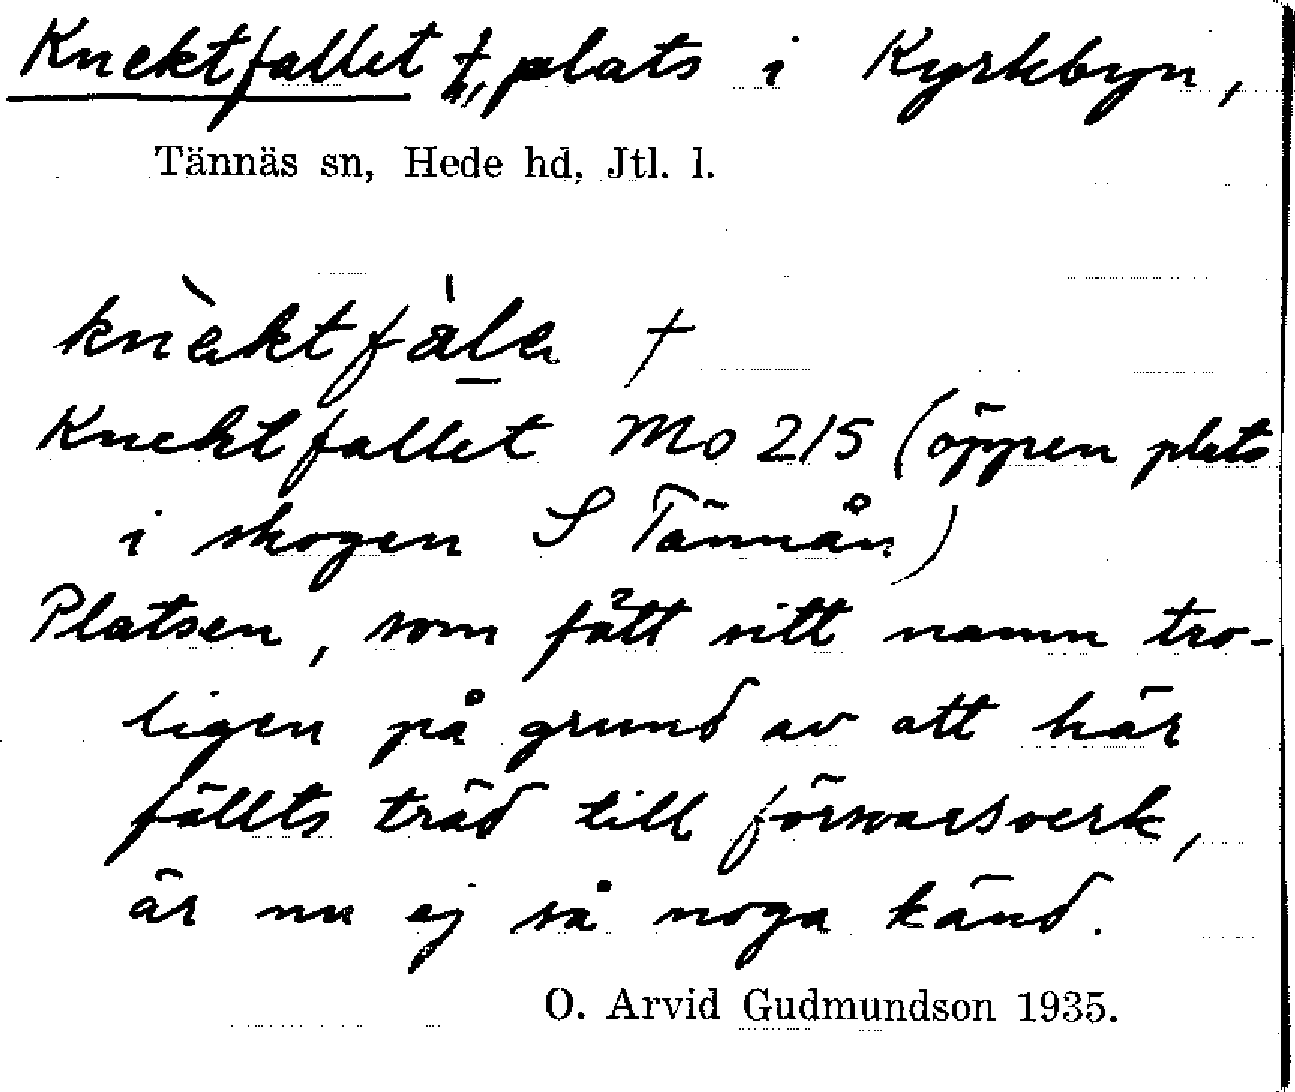 Knektfallet †, plats i Kyrkbyn,
Tännäs sn, Hede hd, Jtl. l.
knèktfàla †
Knektfallet Mo 215 (öppen plats
i skogen S Tännån)
Platsen, som fått sitt namn tro-
ligen på grund av att här
fällts träd till försvarsverk,
är nu ej så noga känd.
O. Arvid Gudmundson 1935.